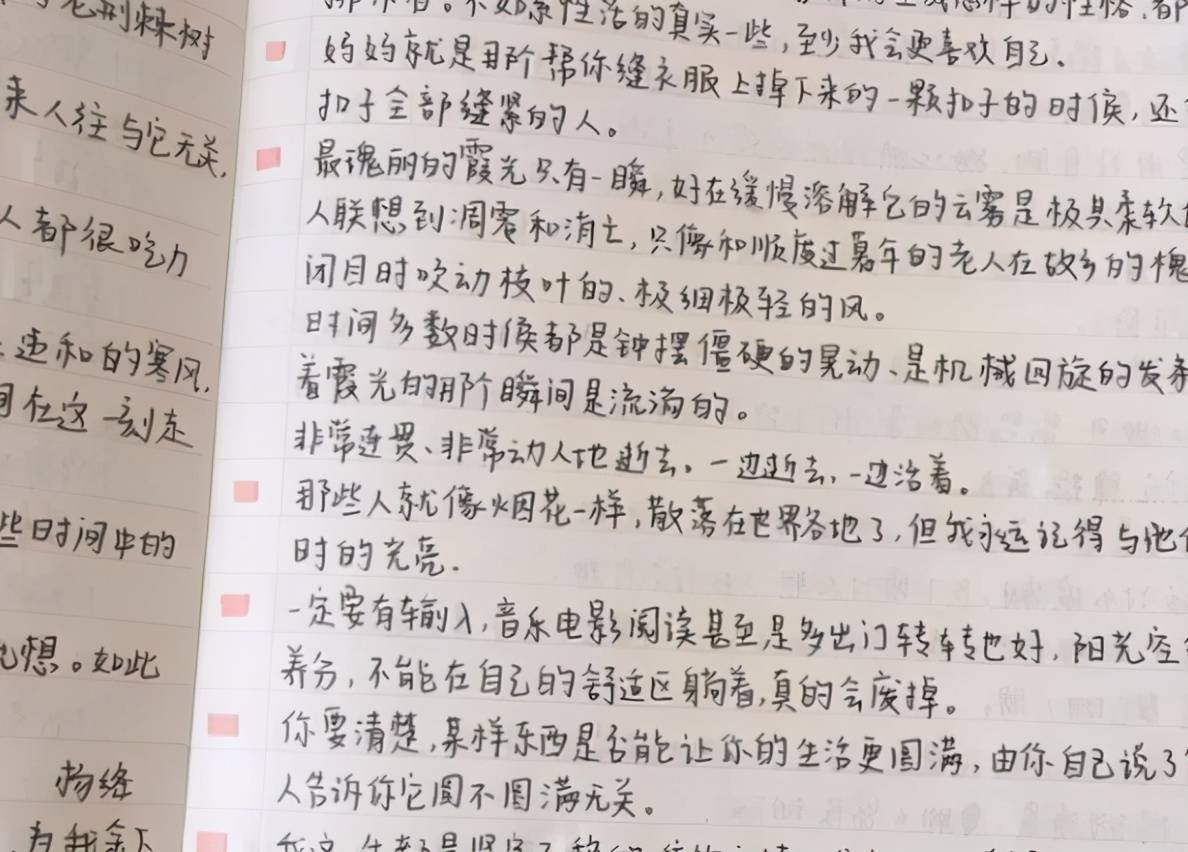 荆棘树
来人往与它无关,
人都很吃力
违和的寒风,
在这一刻走
些时间中的
想。如此
杨绛
不如索性活的真实一些,至少我会更喜欢自己.
妈妈就是那个帮你缝衣服上掉下来的一颗扣子的时候,还
扣子全部缝紧的人。
最瑰丽的霞光只有一瞬,好在缓慢溶解它的云雾是极具柔软
人联想到凋零和消亡,只像和顺度过暮年的老人在故乡的槐
闭目时吹动枝叶的、极细极轻的风。
时间多数时候都是钟摆僵硬的晃动、是机械回旋的发条
着霞光的那个瞬间是流淌的。
非常连贯、非常动人地逝去。一边逝去,一边活着。
那些人就像烟花一样,散落在世界各地了,但我永远记得与他
时的光亮.
一定要有输入,音乐电影阅读甚至是多出门转转也好,阳光空
养分,不能在自己的舒适区躺着,真的会废掉。
你要清楚,某样东西是否能让你的生活更圆满,由你自己说了
人告诉你它圆不圆满无关。